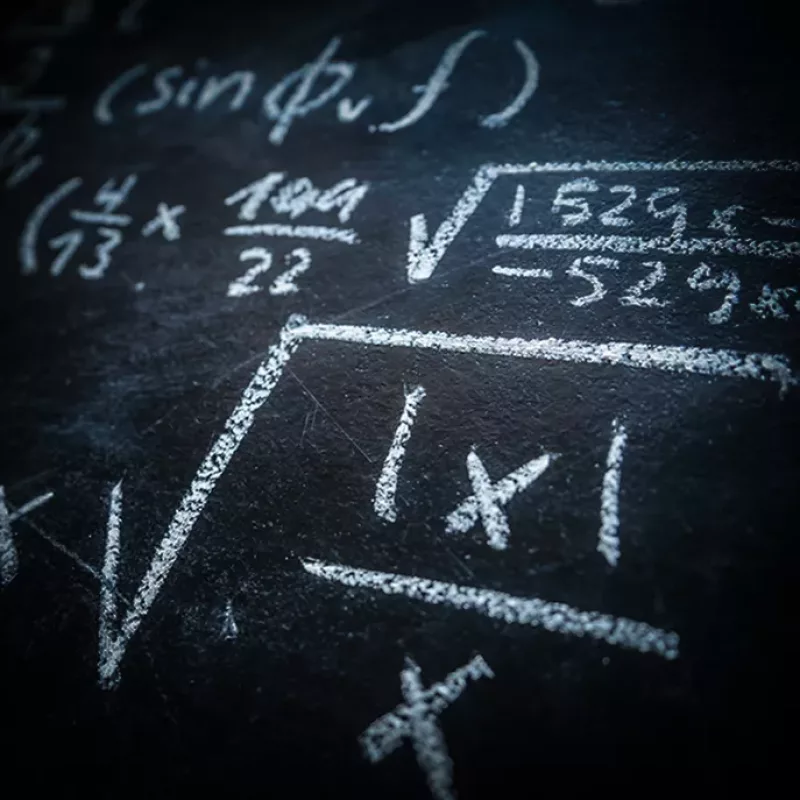 (sin φᵥ f)
(4/13 x 22 √ 1529x -
-529x
x √ |x|
x